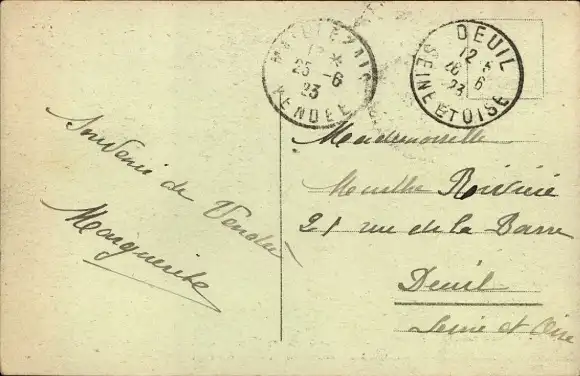 MAILLEZAIS
12 *
25 - 6
23
VENDEE
DEUIL
12 5
26 6
23
SEINE ET OISE
Souvenir de Vendée
Marguerite
Mademoiselle
21 rue de la Barre
Deuil
Seine et Oise